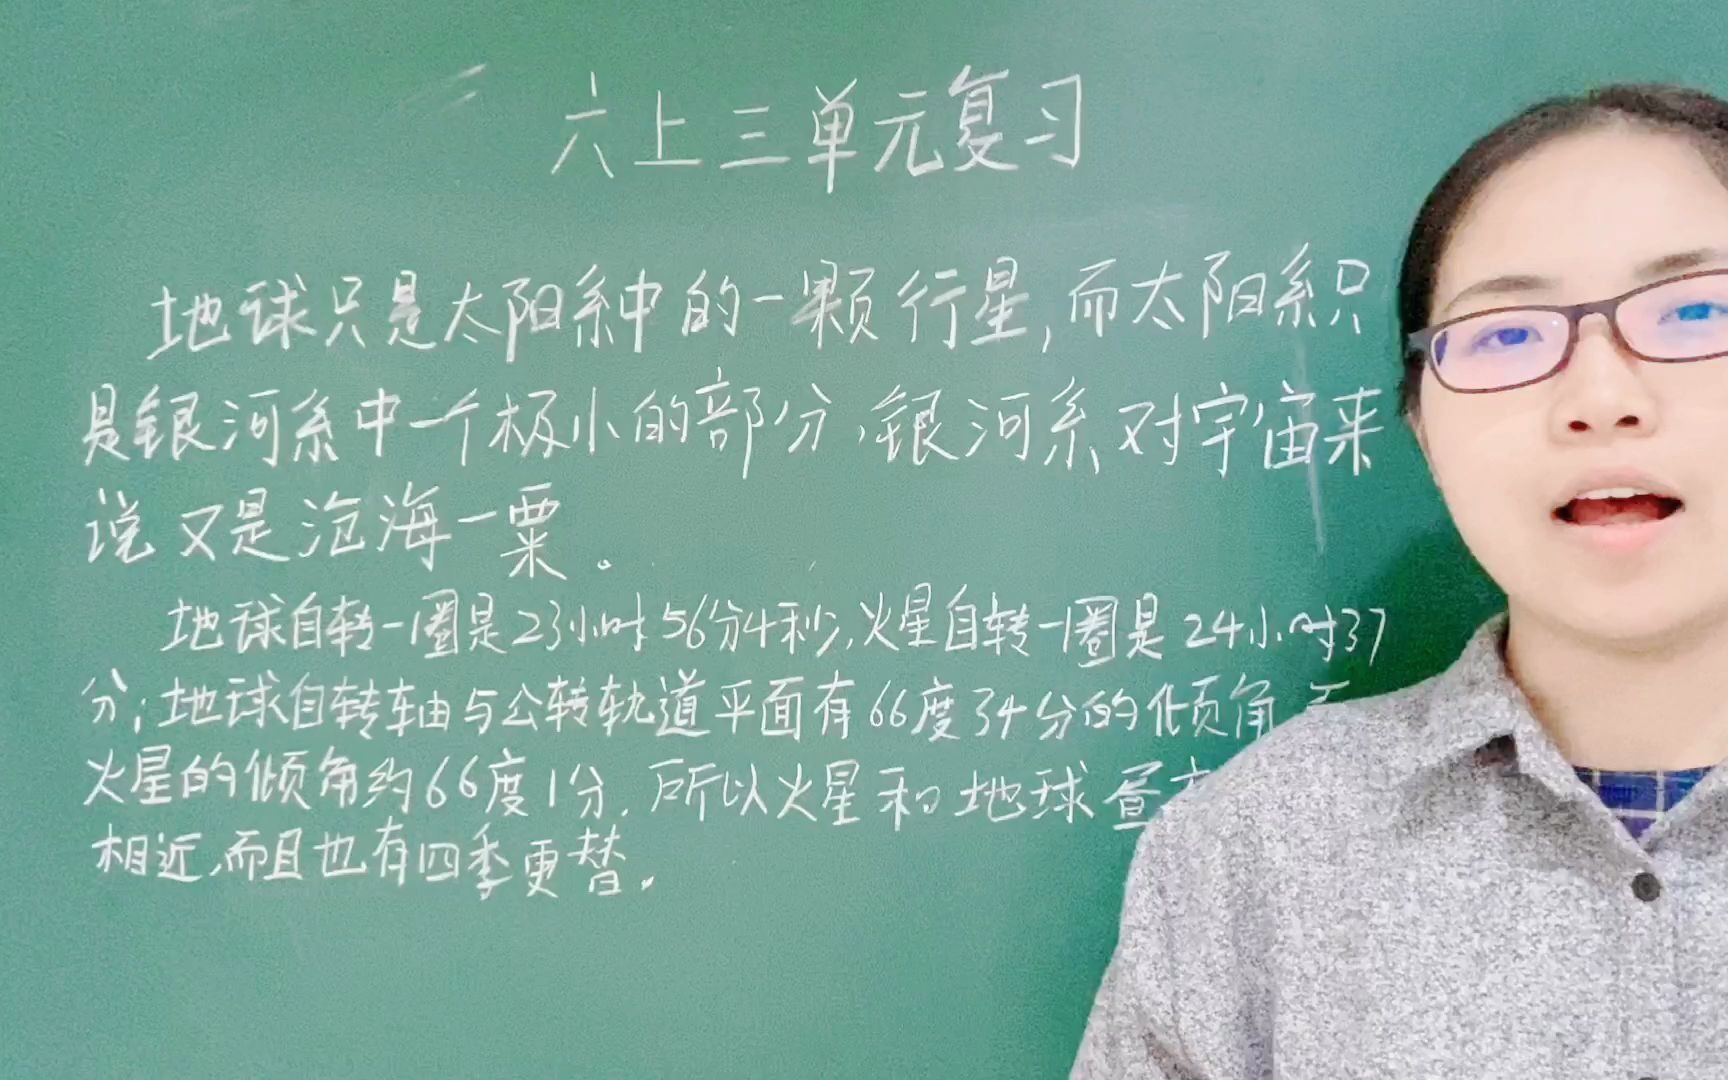 六上三单元复习
地球只是太阳系中的一颗行星,而太阳系只
是银河系中一个极小的部分,银河系对宇宙来
说又是沧海一粟。
地球自转一圈是23小时56分4秒,火星自转一圈是24小时37
分;地球自转轴与公转轨道平面有66度34分的倾角
火星的倾角约66度1分.所以火星和地球昼
相近,而且也有四季更替.